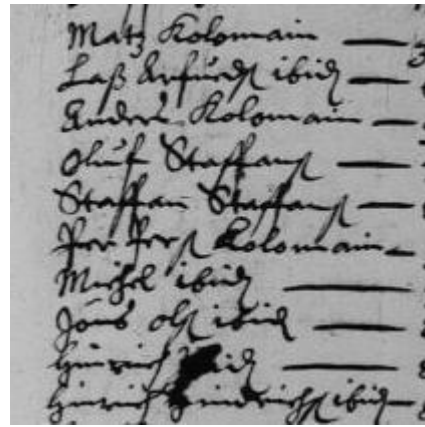 Matz Kolomain
Laß Arfueds ibid
Anders Kolomain
Oluf Staffans
Staffan Staffans
Per Pers Kolomain
Michel ibid
Jöns ols ibid
Hinrich ibid
Hinrich Hindrichs ibid